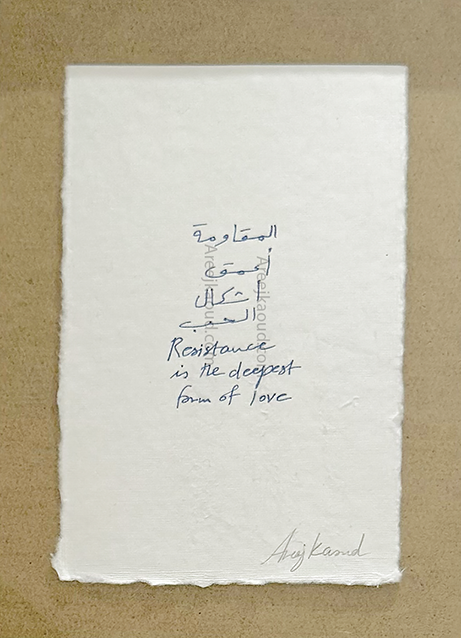 المقاومة
أعمق
أشكال
الحب
Resistance
is the deepest
form of love
Areej Kaoud
Areejkaoud.com
Areejkaoud.com